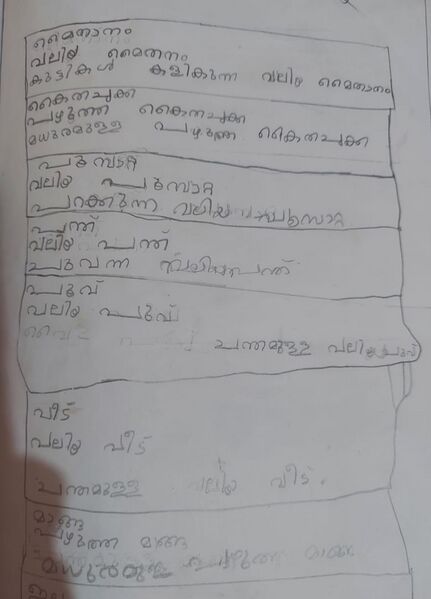 മൈതാനം
വലിയ മൈതനം
കുട്ടികൾ കളികുന്ന വലിയ മൈതാനം
കൈതച്ചക്ക
പഴുത്ത കൈതച്ചക്ക
മധുരമുള്ള പഴുത്ത കൈതച്ചക്ക
പുമ്പാറ്റ
വലിയ പുമ്പാറ്റ
പറക്കുന്ന വലിയ പുമ്പാറ്റ
പന്ത്
വലിയ പന്ത്
ചുവന്ന വലിയ പന്ത്
പുവ്
വലിയ പുവ്
ചന്തമുള്ള വലിയ പുവ്
വീട്
വലിയ വീട്
ചന്തമുള്ള വലിയ വീട്.
മാങ്ങ
പഴുത്ത മാങ്ങ
മധുരമുള്ള പഴുത്ത മാങ്ങ